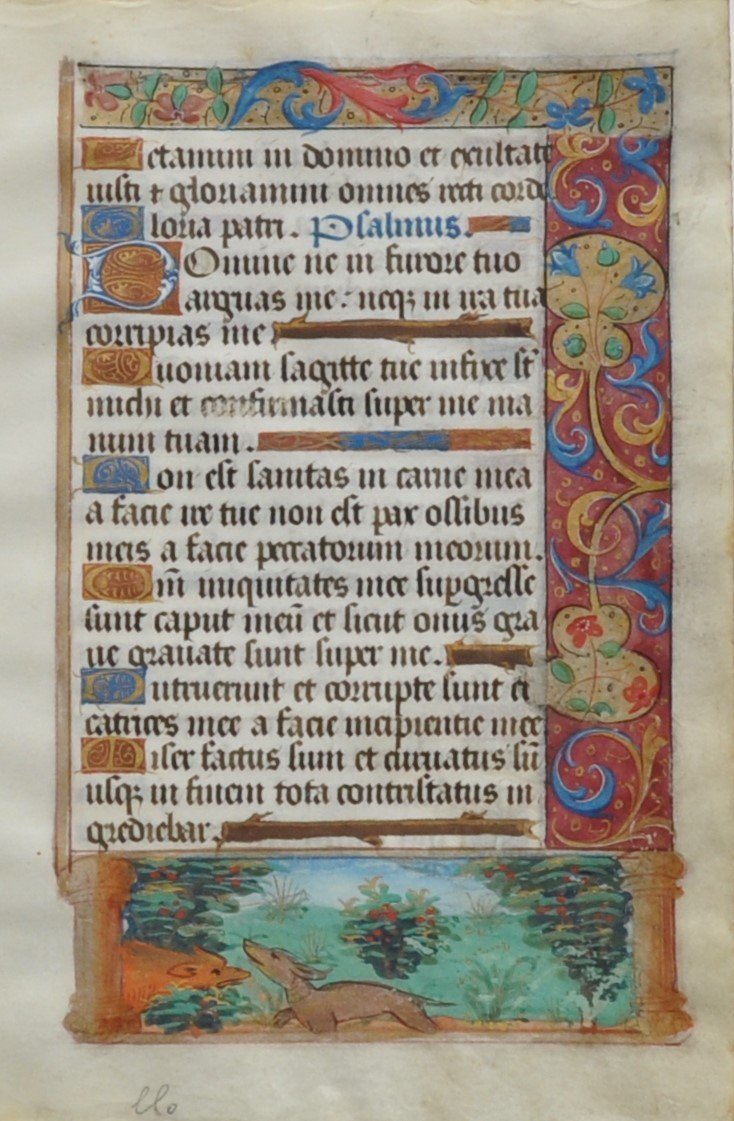 Letamini in domino et exultate
iusti ⁊ gloriamini omnes recti corde
Gloria patri. Psalmus.
Domine ne in furore tuo
arguas me: neqꝫ in ira tua
corripias me
Quoniam sagitte tue infixe st̄
michi et confirmasti super me ma
num tuam.
Non est sanitas in carne mea
a facie ire tue non est pax ossibus
meis a facie peccatorum meorum.
Qm̄ iniquitates mee suꝑgresse
sunt caput meū et sicut onus gra
ue grauate sunt super me.
Putruerunt et corrupte sunt ci
catrices mee a facie incipientie mee
Miser factus sum et curuatus sū
usqꝫ in finem tota contristatus in
grediebar.